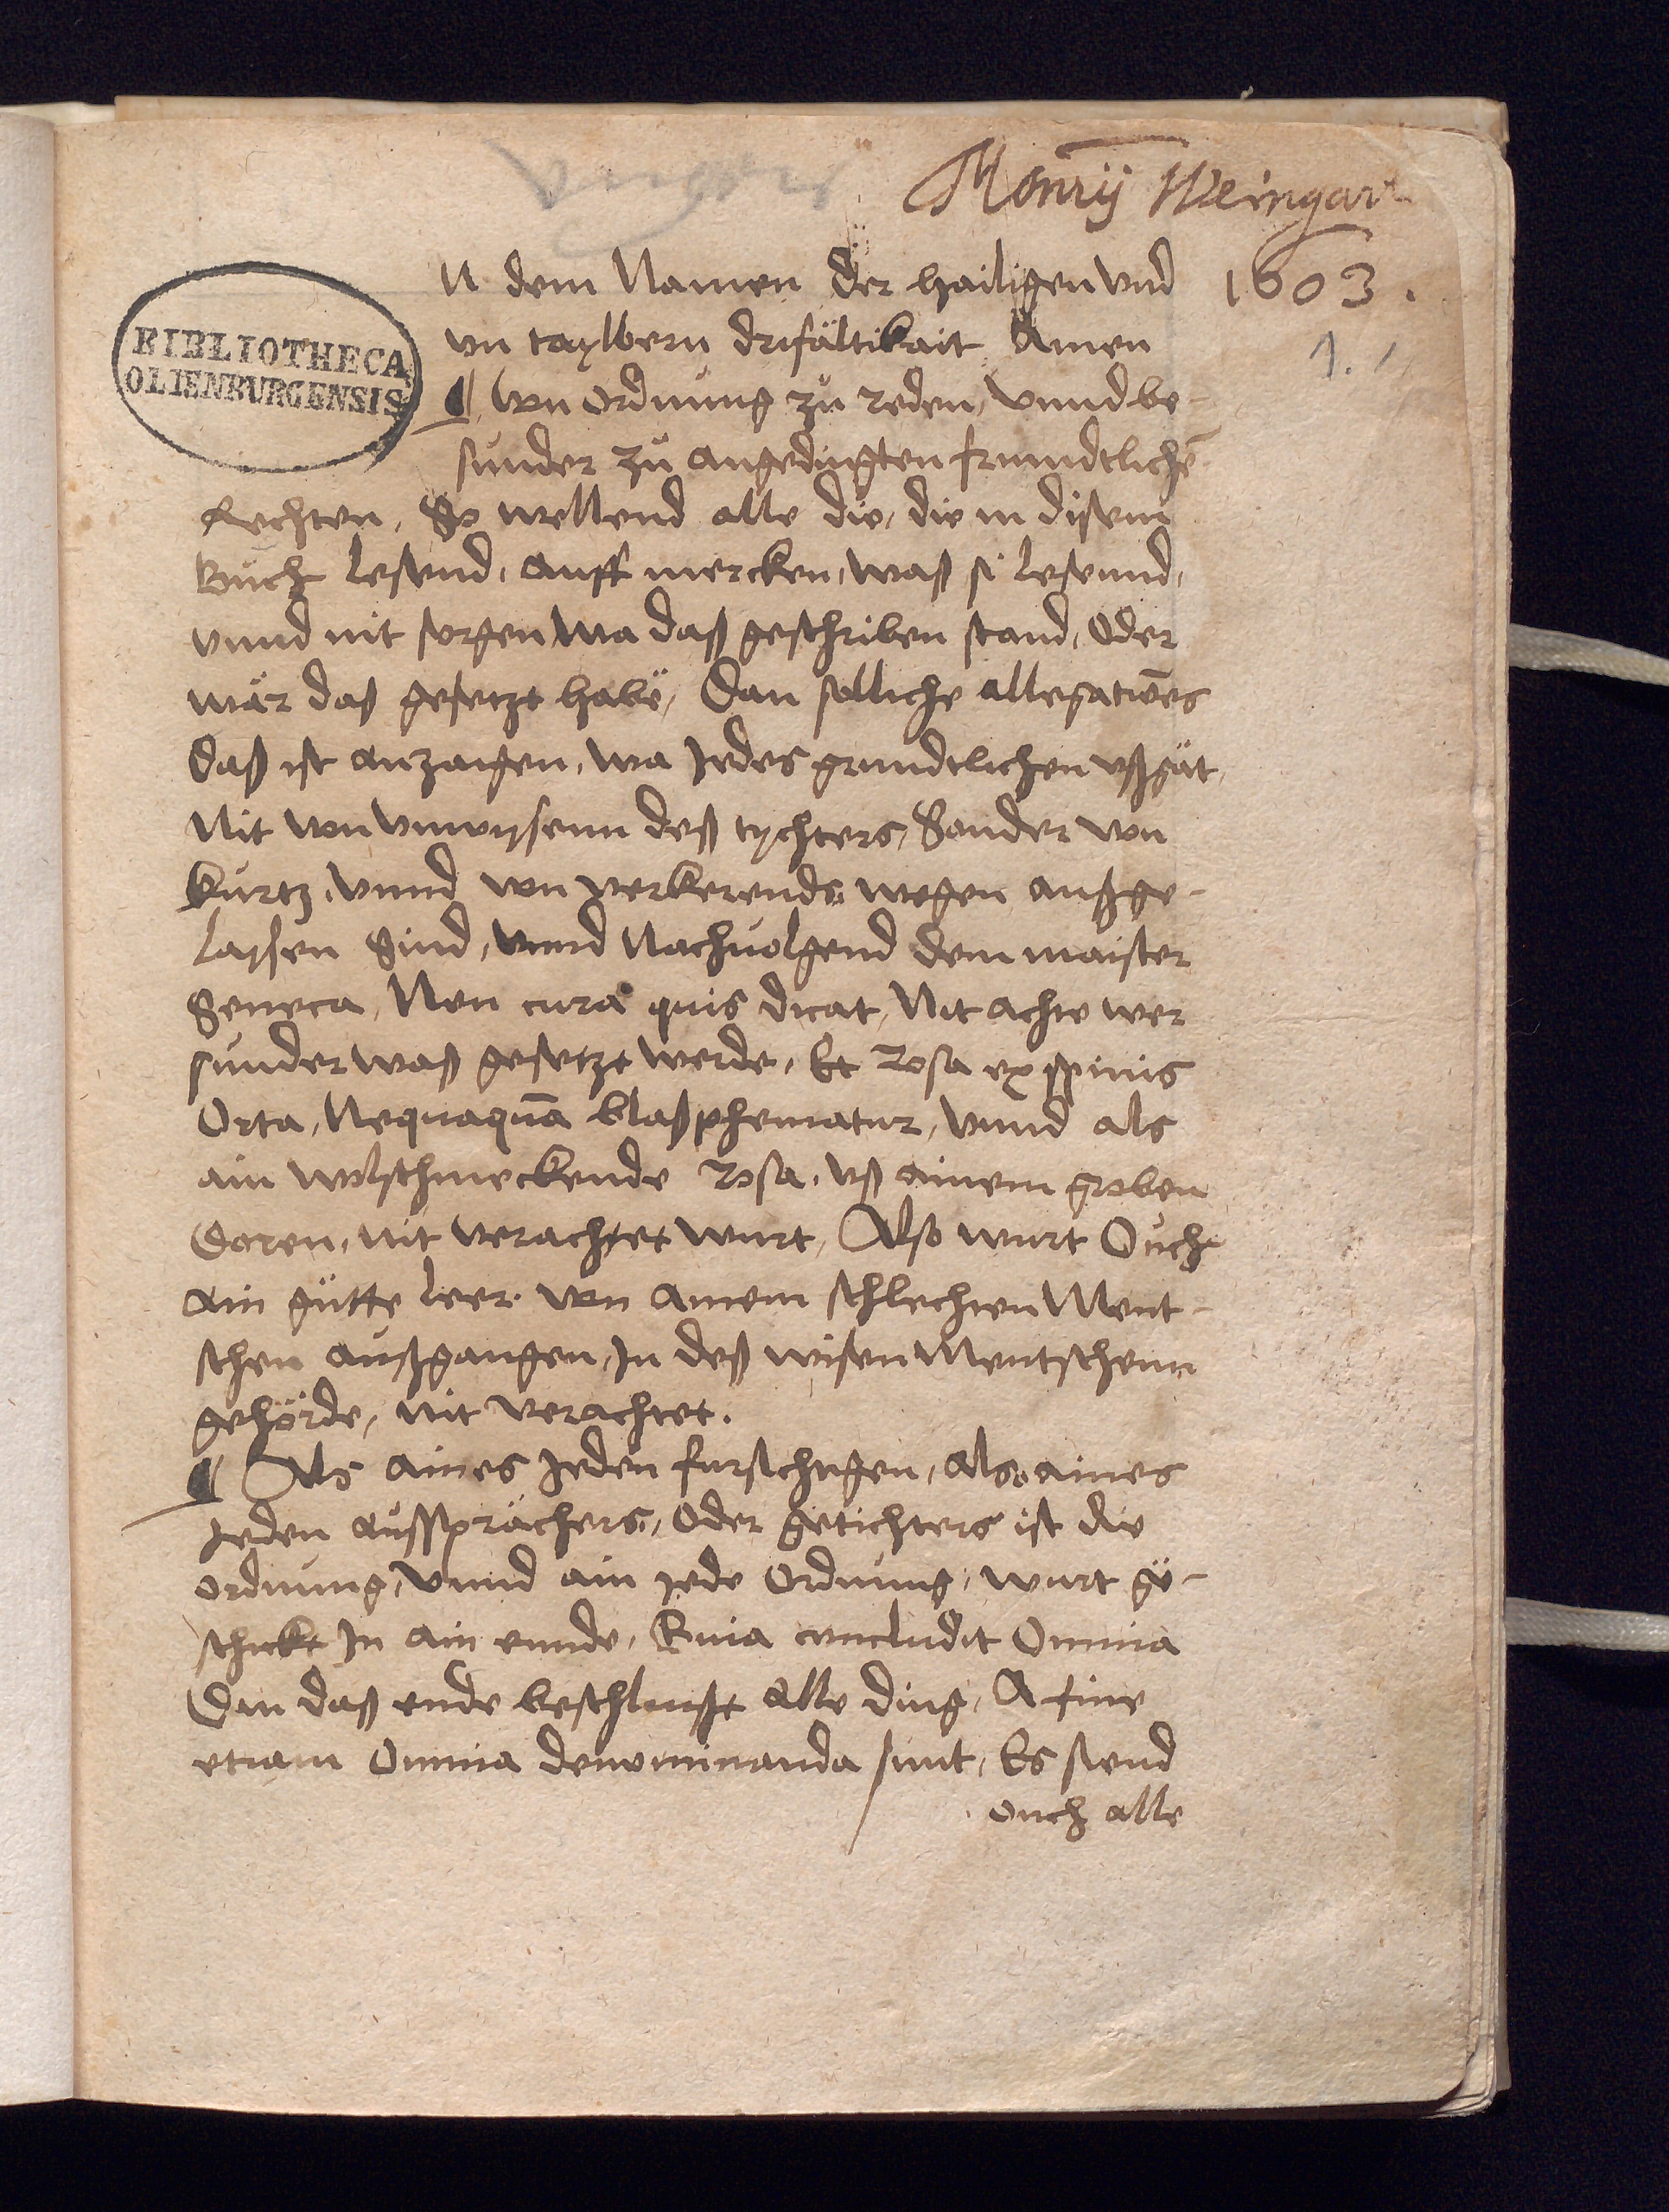 Monrij Weingart
1603.
1.
BIBLIOTHECA
OLIENBURGENSIS
N dem Namen der hailigen vnd
vn taylbern drifältikait Amen
¶ Von ordnung zů reden, vnnd be-
sunder zů angedingten frundtlichē
Rechten, So wellend alle die, die in disem
Bůch lesend, auff mercken, waß si lesennd,
vnnd nit sorgen wa daß geschriben stand, Oder
wär daß gesetzt habe, Dan solliche allegationēs
daß ist anzaigen, wa Jedes grundtlichen vßgät,
Nit von vnwyssenn deß tychters, Sonder von
kurtz, vnnd von verkerends wegen außge-
laßsen Sind, vnnd Nachuolgend dem maister
Seneca, Non cura quis dicat, Nit achte wer
sunder waß gesetzt werde, Et Rosa ex spinis
Orta, Nequaquā blaßphematur, vnnd als
ain wolschmeckende Rosa, vß ainem groben
Doren, nit verachtet wurt, Also wurt Ouch
ain gůtte leer von ainem schlechten Ment-
schen außgangen, In deß wisen Mentschenn
gehörde, nit verachtet.
¶ Als aines Jeden fursichtigen, also aines
Jeden aussprächers, Oder getichters ist die
ordnung, vnnd ain jede Ordnung, wurt ge-
schickt In ain ennde, Quia concludit Omnia
Dan daß ende beschleust alle ding, A fine
etiam Omnia denominanda sunt, Es siend
ouch alle